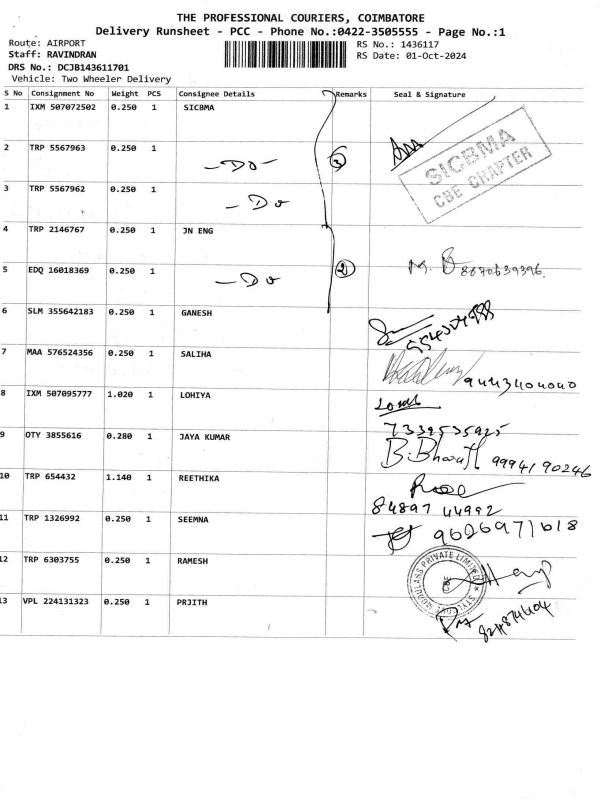 THE PROFESSIONAL COURIERS, COIMBATORE
Delivery Runsheet - PCC - Phone No.:0422-3505555 - Page No.:1
Route: AIRPORT
RS No.: 1436117
Staff: RAVINDRAN
RS Date: 01-Oct-2024
DRS No.: DCJB143611701
Vehicle: Two Wheeler Delivery
S No Consignment No Weight PCS Consignee Details Remarks Seal & Signature
1 IXM 507072502 0.250 1 SICBMA
SICBMA
CBE CHAPTER
2 TRP 5567963 0.250 1 -Do- 3
3 TRP 5567962 0.250 1 -Do
4 TRP 2146767 0.250 1 JN ENG
5 EDQ 16018369 0.250 1 -Do 2 M. 8870639396
6 SLM 355642183 0.250 1 GANESH
7 MAA 576524356 0.250 1 SALIHA 9443404040
8 IXM 507095777 1.020 1 LOHIYA
7339535925
9 OTY 3855616 0.280 1 JAYA KUMAR B. Bharath 9994190246
10 TRP 654432 1.140 1 REETHIKA
84897 44992
11 TRP 1326992 0.250 1 SEEMNA 9626971618
12 TRP 6303755 0.250 1 RAMESH
PRIVATE LIMITED
CBE
13 VPL 224131323 0.250 1 PRJITH